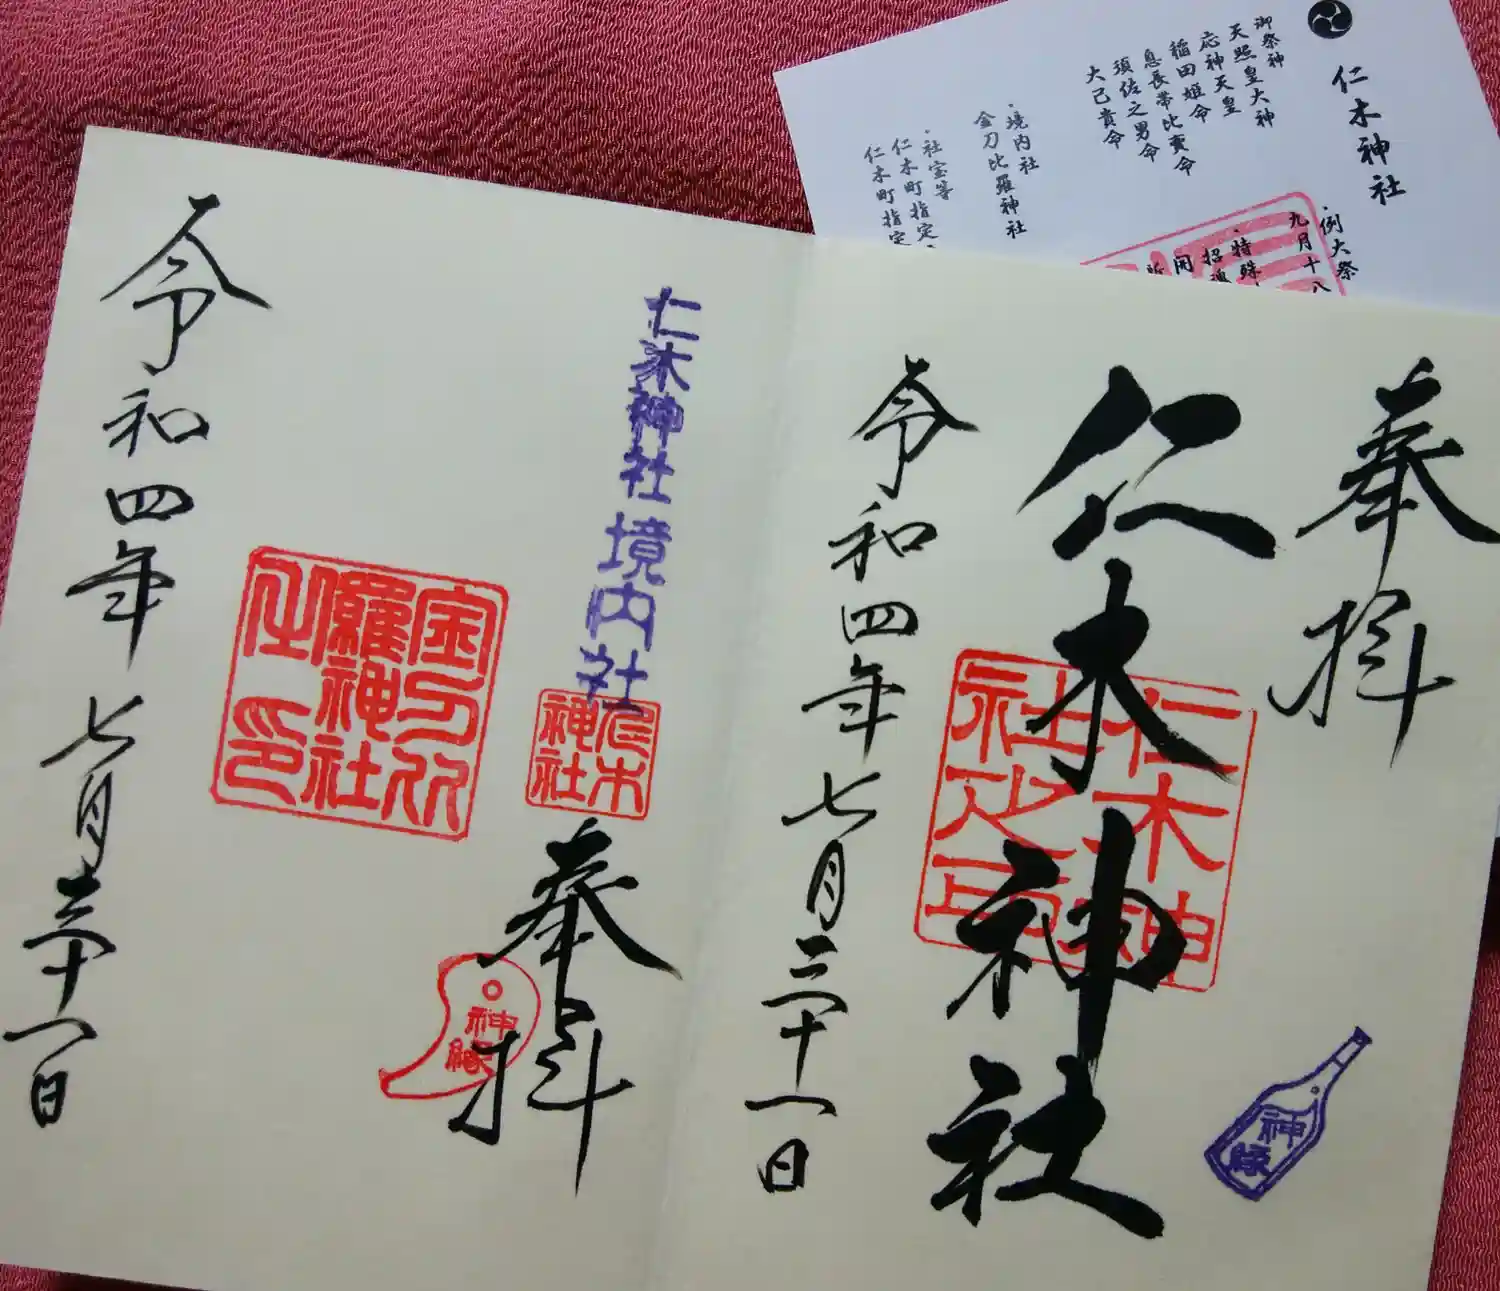 仁木神社
御祭神
天照皇大神
応神天皇
稲田姫命
息長帯比賣命
須佐之男命
大己貴命
・境内社
金刀比羅神社
・社宝等
仁木町指定
仁木町指定
・例大祭
九月十八
・特殊
招魂
奉拝
仁木神社
仁木神
社之印
令和四年七月三十一日
神縁
仁木神社境内社
仁木
神社
奉拝
神縁
金刀比
羅神社
之印
令和四年七月三十一日